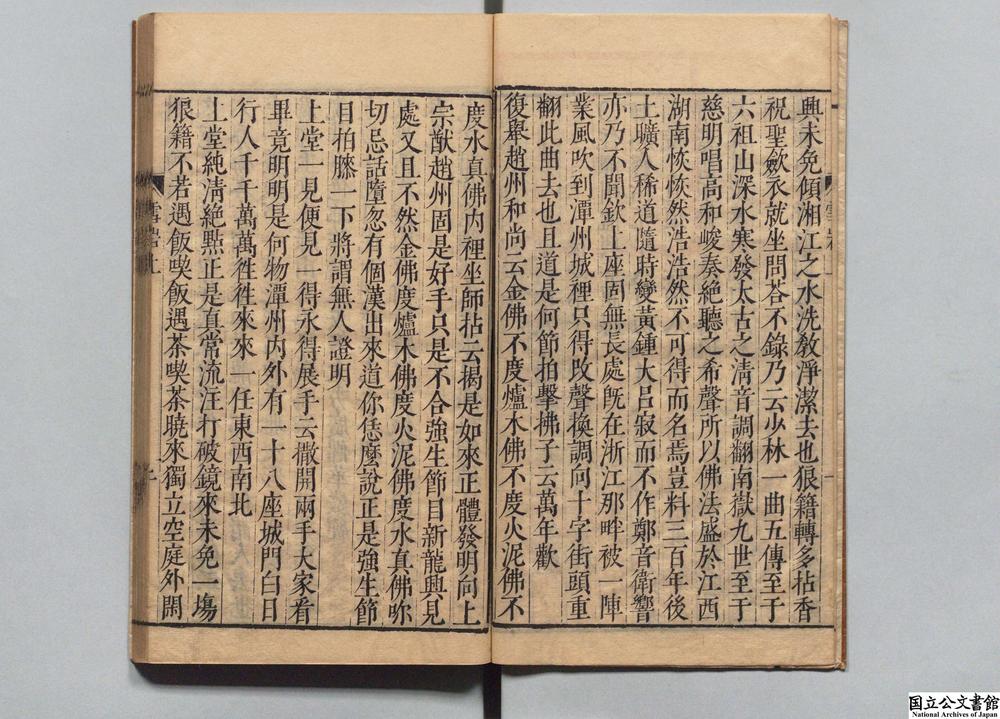 興未免傾湘江之水洗教淨潔去也狼籍轉多拈香
祝聖斂衣就坐問荅不錄乃云少林一曲五傳至于
六祖山深水寒發太古之清音調翻南嶽九世至于
慈明唱高和峻奏絕聽之希聲所以佛法盛於江西
湖南恢恢然浩浩然不可得而名焉豈料三百年後
土曠人稀道隨時變黃鍾大呂寂而不作鄭音衛響
亦乃不聞欽上座固無長處既在浙江那畔被一陣
業風吹到潭州城裡只得改聲換調向十字街頭重
翻此曲去也且道是何節拍擊拂子云萬年歡
復舉趙州和尚云金佛不度爐木佛不度火泥佛不
度水真佛內裡坐師拈云揭是如來正體發明向上
宗猷趙州固是好手只是不合強生節目新龍興見
處又且不然金佛度爐木佛度火泥佛度水真佛咏
切忌話墮忽有個漢出來道你恁麼說正是強生節
目拍膝一下將謂無人證明
上堂一見便見一得永得展手云撒開兩手大家看
畢竟明明是何物潭州內外有一十八座城門白日
行人千千萬萬徃徃來來一任東西南北
上堂純清絕點正是真常流汪打破鏡來未免一塲
狼籍不若遇飯喫飯遇茶喫茶曉來獨立空庭外閙
国立公文書館
National Archives of Japan